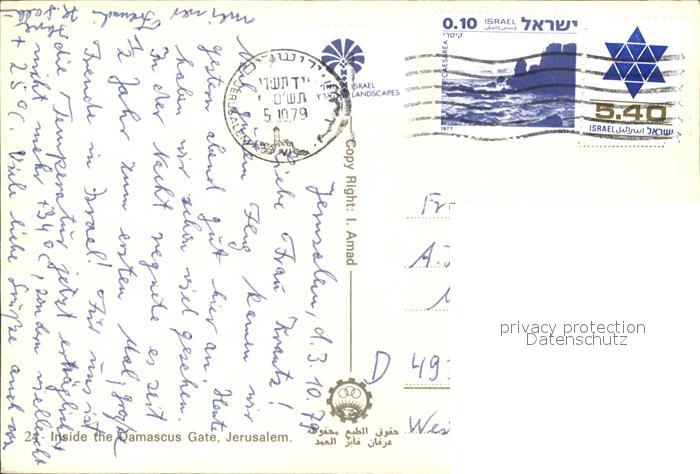 Jerusalem, d. 3.10.79
Liebe Frau Krantz!
Nach gutem Flug kamen wir
gestern abend gut hier an. Heute
haben wir schon viel gesehen.
In der Nacht regnete es seit
½ Jahr zum ersten Mal, große
Freude in Israel! Für uns ist
die Temperatur jetzt erträglicher
nicht mehr +34°C, sondern vielleicht
+25°C. Viele liebe Grüße auch von
meiner
Freundin
ISRAEL
LANDSCAPES
JERUSALEM
י"ד תשרי
תש"ם
5.10.79
0.10 ISRAEL ישראל
קיסרי
CAESAREA
1977
5.40
ISRAEL اسرائيل ישראל
Copy Right: I. Amad
Fr
D 49
Wes
privacy protection
Datenschutz
24- Inside the Damascus Gate, Jerusalem.
حقوق الطبع محفوظة
عرفان فايز العمد